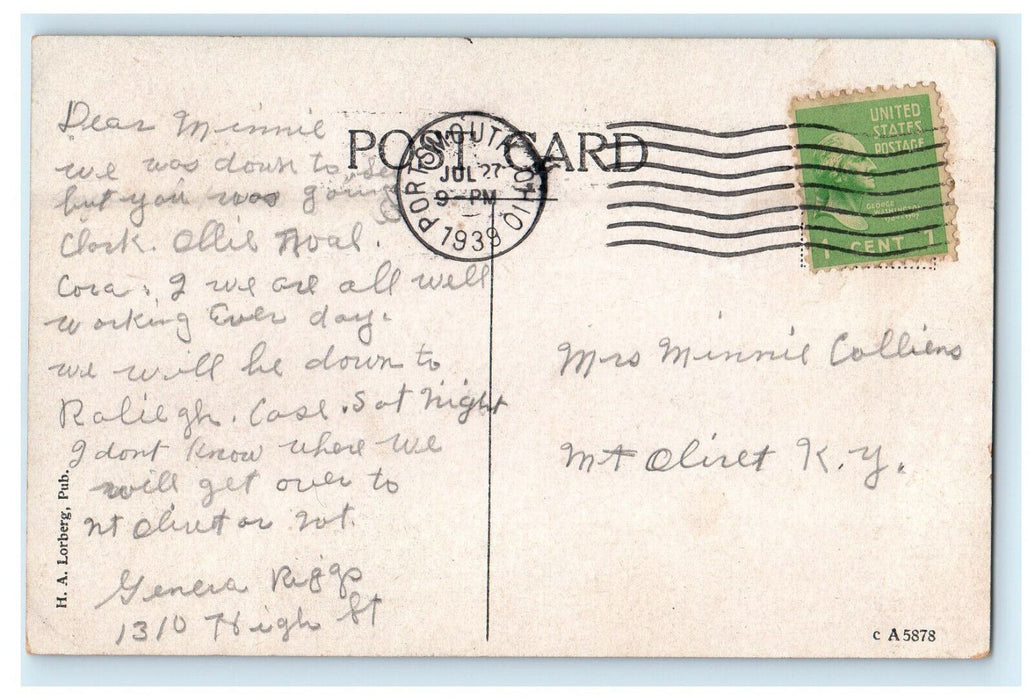 Dear Minnie
we was down to see
but you was going
Clark. Ollie
Cora. I we are all well
working Ever day.
we will be down to
Raliegh. Case. Sat Night
I dont Know where we
will get over to
Mt Olivet or not.
Riggs
1310 High St
H. A. Lorberg, Pub.
POST CARD
PORTSMOUTH OHIO
JUL 27
9-PM
1939
UNITED
STATES
POSTAGE
GEORGE
WASHINGTON
1 CENT 1
Mrs Minnie Colliens
Mt Olivet K.Y.
c A5878